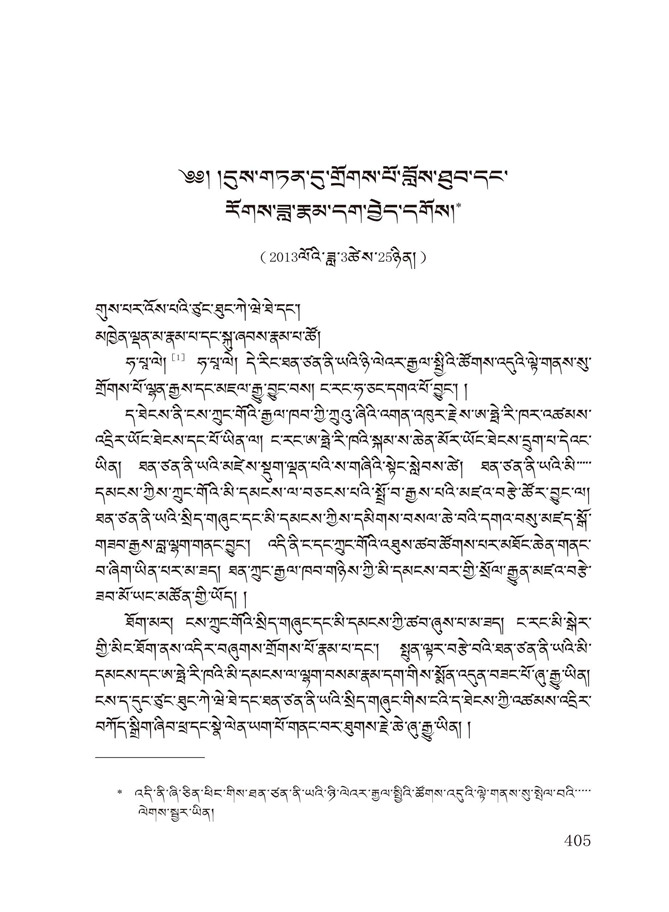 ༄༅། །དུས་གཏན་དུ་གྲོགས་པོ་བློས་ཐུབ་དང་
རོགས་ཟླ་རྣམ་དག་བྱེད་དགོས།*
(2013ལོའི་ཟླ་3ཚེས་25ཉིན།)
གུས་པར་འོས་པའི་ཙུང་ཐུང་ཀེ་ཝེ་ཐེ་དང་།
མཁྱེན་ལྡན་མ་རྣམ་པ་དང་སྐུ་ཞབས་རྣམ་པ་ཚོ།
ཧ་པཱ་ལེ། [1] ཧ་པཱ་ལེ། དེ་རིང་ཐན་ཙན་ནི་ཡའི་ཉི་ལེའར་རྒྱལ་སྤྱིའི་ཚོགས་འདུའི་ལྟེ་གནས་སུ་
གྲོགས་པོ་ལྷན་རྒྱས་དང་མཇལ་རྒྱུ་བྱུང་བས། ང་རང་ཧ་ཅང་དགའ་པོ་བྱུང་། །
ད་ཐེངས་ནི་ངས་ཀྲུང་གོའི་རྒྱལ་ཁབ་ཀྱི་ཀྲུའུ་ཞིའི་འགན་འཁུར་རྗེས་ཨ་ཧྥེ་རི་ཁར་འཚམས་
འདྲིར་ཡོང་ཐེངས་དང་པོ་ཡིན་ལ། ང་རང་ཨ་ཧྥེ་རི་ཁའི་སྐམ་ས་ཆེན་མོར་ཡོང་ཐེངས་དྲུག་པ་དེའང་
ཡིན། ཐན་ཙན་ནི་ཡའི་མཛེས་སྡུག་ལྡན་པའི་ས་གཞིའི་སྟེང་སླེབས་ཚེ། ཐན་ཙན་ནི་ཡའི་མི་·····
དམངས་ཀྱིས་ཀྲུང་གོའི་མི་དམངས་ལ་བཅངས་པའི་སྤྲོ་བ་རྒྱས་པའི་མཛའ་བརྩེ་ཚོར་བྱུང་ལ།
ཐན་ཙན་ནི་ཡའི་སྲིད་གཞུང་དང་མི་དམངས་ཀྱིས་དམིགས་བསལ་ཆེ་བའི་དགའ་བསུ་མཛད་སྒོ་
གཟབ་རྒྱས་བླ་ལྷག་གནང་བྱུང་། འདི་ནི་ང་དང་ཀྲུང་གོའི་འཐུས་ཚབ་ཚོགས་པར་མཐོང་ཆེན་གནང་
བ་ཞིག་ཡིན་པར་མ་ཟད། ཐན་ཀྲུང་རྒྱལ་ཁབ་གཉིས་ཀྱི་མི་དམངས་བར་གྱི་སྲོལ་རྒྱུན་མཛའ་བརྩེ་
ཟབ་མོ་ཡང་མཚོན་གྱི་ཡོད། །
ཐོག་མར། ངས་ཀྲུང་གོའི་སྲིད་གཞུང་དང་མི་དམངས་ཀྱི་ཚབ་ཞུས་པ་མ་ཟད། ང་རང་མི་སྒེར་
གྱི་མིང་ཐོག་ནས་འདིར་བཞུགས་གྲོགས་པོ་རྣམ་པ་དང་། སྤུན་ལྟར་བརྩེ་བའི་ཐན་ཙན་ནི་ཡའི་མི་
དམངས་དང་ཨ་ཧྥེ་རི་ཁའི་མི་དམངས་ལ་ལྷག་བསམ་རྣམ་དག་གིས་སྨོན་འདུན་བཟང་པོ་ཞུ་རྒྱུ་ཡིན།
ངས་ད་དུང་ཙུང་ཐུང་ཀེ་ཝེ་ཐེ་དང་ཐན་ཙན་ནི་ཡའི་སྲིད་གཞུང་གིས་ངའི་ད་ཐེངས་ཀྱི་འཚམས་འདྲིར་
བཀོད་སྒྲིག་ཞིབ་ཕྲ་དང་སྣེ་ལེན་ཡག་པོ་གནང་བར་ཐུགས་རྗེ་ཆེ་ཞུ་རྒྱུ་ཡིན། །
* འདི་ནི་ཞི་ཅིན་ཕིང་གིས་ཐན་ཙན་ནི་ཡའི་ཉི་ལེའར་རྒྱལ་སྤྱིའི་ཚོགས་འདུའི་ལྟེ་གནས་སུ་སྤེལ་བའི·····
ལེགས་སྦྱར་ཡིན།
405